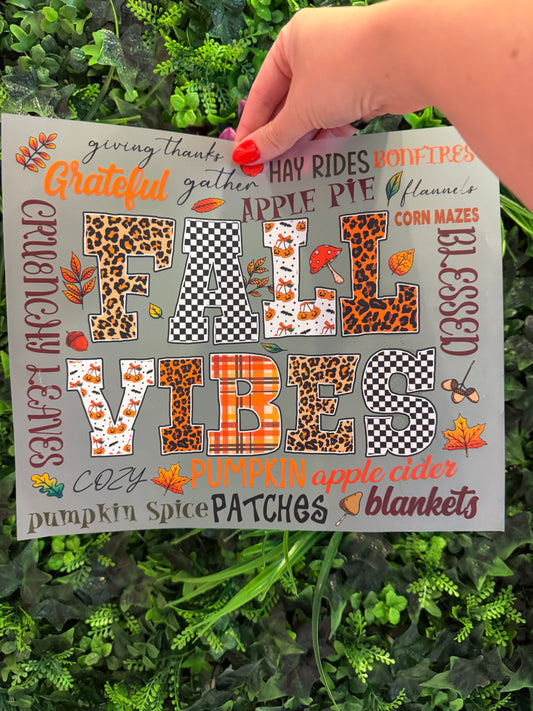 giving thanks
HAY RIDES
BONFIRES
Grateful
gather
APPLE PIE
flannels
CORN MAZES
CRUNCHY LEAVES
FALL
BLESSED
VIBES
COZY
PUMPKIN
apple cider
pumpkin spice
PATCHES
blankets